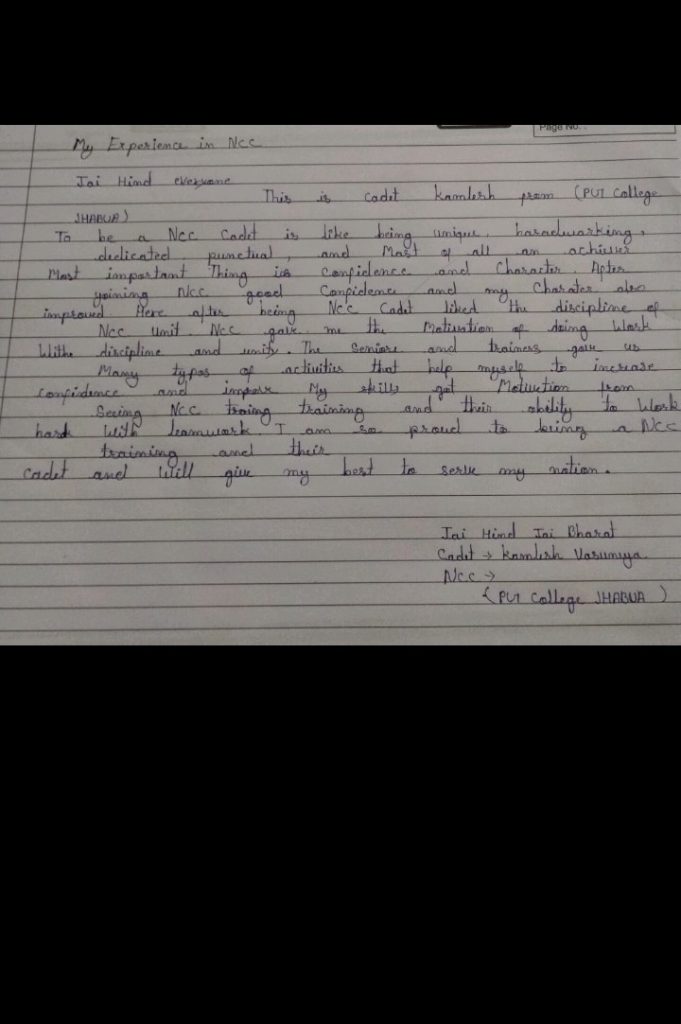 Page No.
My Experience in NCC
Jai Hind everyone
This is cadet kamlesh from (PUT College
JHABUA)
To be a NCC Cadet is like being unique, haradwarking,
dedicated, punctual, and Most of all an achiever
Most important Thing is Confidence and Character. After
yoining NCC good Confidence and my Charater also
improved Here after being NCC Cadet liked the discipline of
NCC unit. NCC gave me the Motivation of doing Work
Withe discipline and unity. The Seniors and trainers gave us
Many types of activities that help myself to increase
Confidence and improve My skills got Motivation from
Seeing NCC training and their ability to Work
hard With teamwork. I am so proud to being a NCC
training and their
Cadet and Will give my best to serve my nation.
Jai Hind Jai Bharat
Cadet → Kamlesh Vasuniya
NCC →
(PUT College JHABUA)